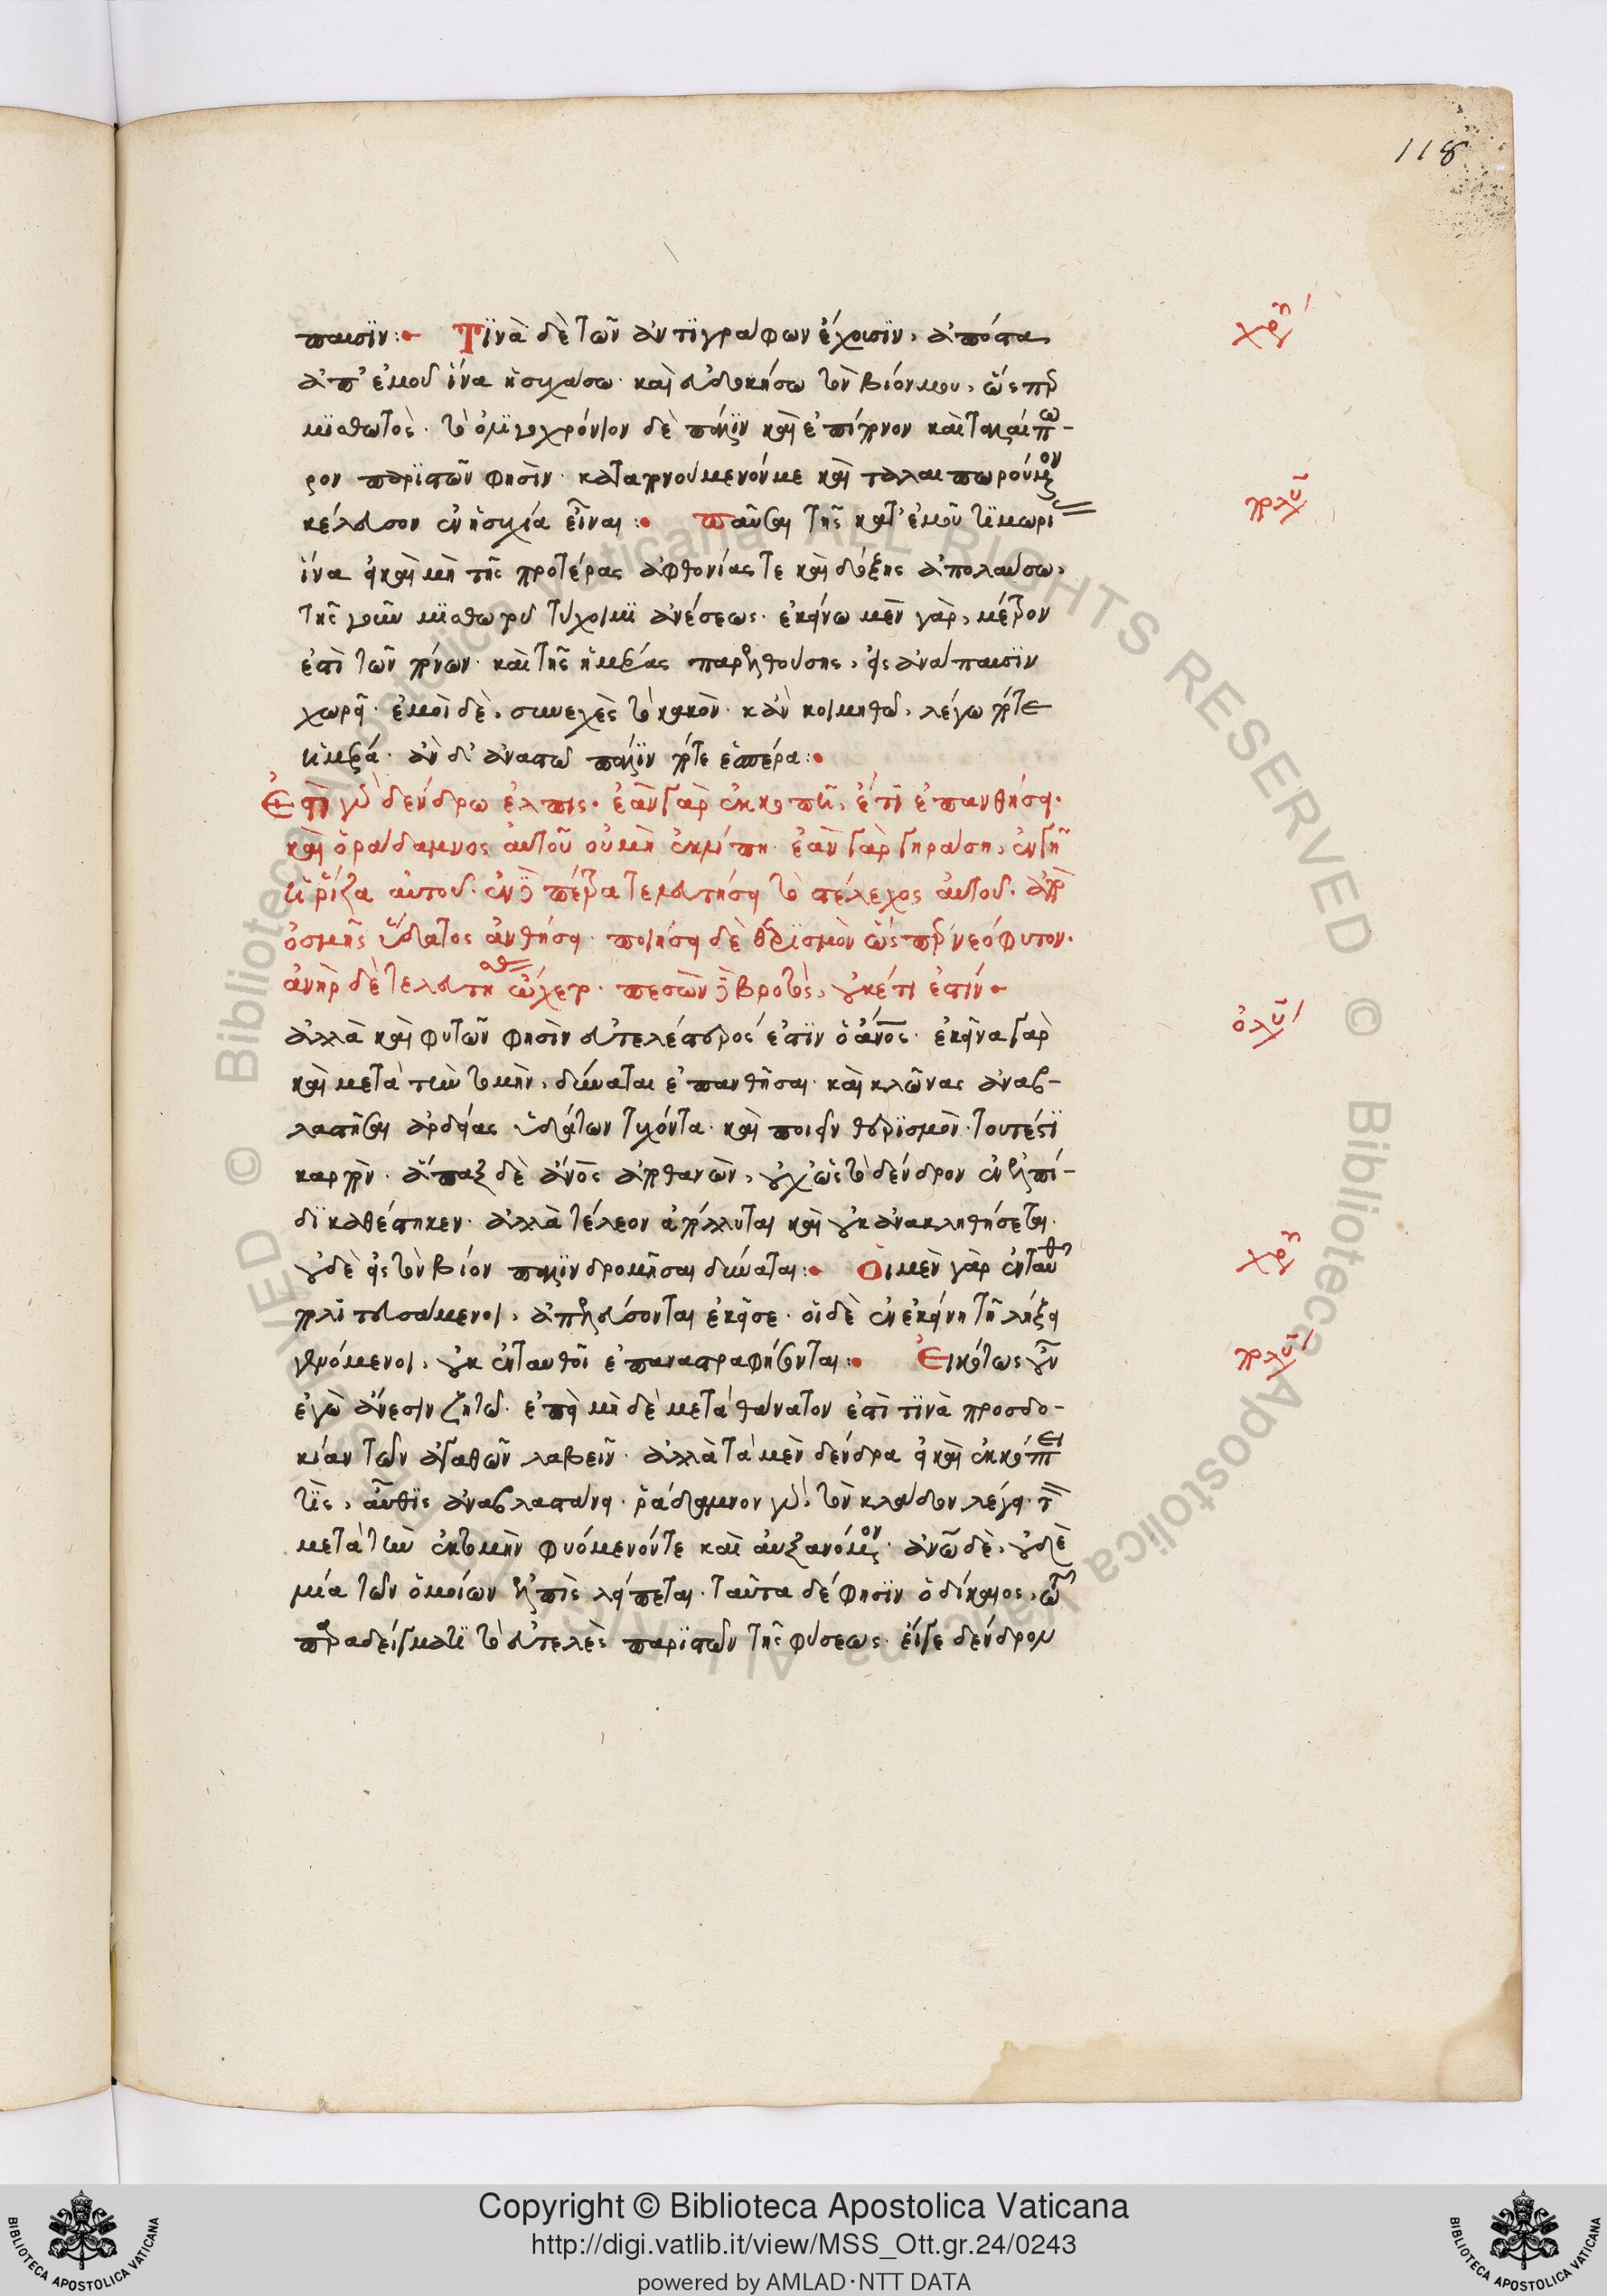 118
παυσιν:• Τινὰ δὲ τῶν ἀντιγράφων ἔχουσιν, ἀπόστα χρ
ἀπ' ἐμοῦ ἵνα ἡσυχάσω· καὶ εὐδοκήσω τὸν βίον μου, ὥσπερ
μισθωτός· τὸ ὀλιγοχρόνιον δὲ πάλιν καὶ ἐπίπονον καὶ ταλαίπω-
ρον παριστῶν φησὶν· καταπονούμενόν με καὶ ταλαιπωρούμενον
κέλευσον ἐν ἡσυχία εἶναι:• παῦσαι τῆς κατ' ἐμοῦ τιμωρί πολυ
ἵνα εἰ καὶ μὴ τῆς προτέρας ἀφθονίας τε καὶ δόξης ἀπολαύσω,
τῆς γοῦν μισθωτοῦ τύχοιμι ἀνέσεως· ἐκείνω μὲν γὰρ, μέτρον
ἐστὶ τῶν πόνων· καὶ τῆς ἡμέρας παρελθούσης, εἰς ἀνάπαυσιν
χωρεῖ· ἐμοὶ δὲ, συνεχὲς τὸ κακὸν· κἀν κοιμηθῶ, λέγω πότε
ἡμέρα· ἀν δ' ἀναστῶ πάλιν πότε ἑσπέρα:•
Ἔστι γὰρ δένδρω ἐλπις· ἐὰν γὰρ ἐκκοπῆ, ἔτι ἐπανθήσει·
καὶ ὁ ράδαμνος αὐτοῦ οὐ μὴ ἐκλίπη· ἐὰν γὰρ γηράση, ἐν γῆ
ἡ ρίζα αὐτοῦ· ἐν δὲ πέτρα τελευτήση τὸ στέλεχος αὐτοῦ· ἀπὸ
ὀσμῆς ὕδατος ἀνθήσει· ποιήσει δὲ θερισμὸν ὥσπερ νεόφυτον·
ἀνὴρ δὲ τελευτήσας ὤχετο· πεσὼν δὲ βροτὸς, οὐκέτι ἐστίν•
ἀλλὰ καὶ φυτῶν φησὶν εὐτελέστερος ἐστὶν ὁ ἄνος· ἐκεῖνα γὰρ ὀλυ
καὶ μετὰ τὴν τομὴν, δύναται ἐπανθῆσαι· καὶ κλῶνας ἀναβ-
λαστῆσαι ἀρδείας ὑδάτων τυχόντα· καὶ ποιεῖν θερισμὸν· τουτέστι
καρπὸν· ἅπαξ δὲ ἄνος ἀποθανὼν, οὐχ ὡς τὸ δένδρον ἐν ἐλπί-
δι καθέστηκεν· ἀλλὰ τέλεον ἀπόλλυται καὶ οὐκ ἀνακληθήσεται·
οὐδὲ εἰς τὸν βίον πάλιν δραμῆσαι δύναται:• Οἱ μὲν γὰρ ἐνταῦθ χρ
πολιτευσάμενοι, ἀπελεύσονται ἐκεῖσε· οἱ δὲ ἐν ἐκείνη τῆ λήξει
γενόμενοι, οὐκ ἐνταυθοῖ ἐπαναστραφήσονται:• Εἰκότως οὖν πολυ
ἐγὼ ἄνεσιν ζητῶ· ἐπεὶ μὴ δὲ μετὰ θάνατον ἐστὶ τινὰ προσδο-
κίαν τῶν ἀγαθῶν λαβεῖν· ἀλλὰ τὰ μὲν δένδρα εἰ καὶ ἐκκόπτει
τις, αὖθις ἀναβλαστάνει· ῥάδαμνον γὰρ, τὸν κλάδον λέγει· τὸν
μετὰ τὴν ἐκτομὴν φυόμενόν τε καὶ αὐξανόμενον· ἀνῶ δὲ, οὐδὲ
μία τῶν ὁμοίων ἐλπὶς λείπεται· ταῦτα δέ φησιν ὁ δίκαιος, ὡς
παραδείγματι τὸ εὐτελὲς παριστῶν τῆς φύσεως· εἴγε δένδρου
Copyright © Biblioteca Apostolica Vaticana
http://digi.vatlib.it/view/MSS_Ott.gr.24/0243
powered by AMLAD·NTT DATA